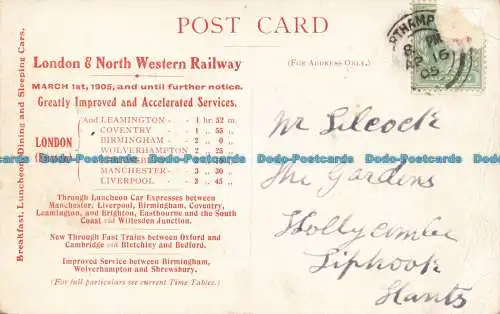 POST CARD
London & North Western Railway
(FOR ADDRESS ONLY.)
MARCH 1st, 1905, and until further notice.
Greatly Improved and Accelerated Services.
Breakfast, Luncheon, Dining and Sleeping Cars.
LONDON
And LEAMINGTON - - 1 hr. 52 m.
COVENTRY - - 1 „ 55 „
BIRMINGHAM - - 2 „ 0 „
WOLVERHAMPTON 2 „ 25 „
MANCHESTER - - 3 „ 30 „
LIVERPOOL - - 3 „ 45 „
Through Luncheon Car Expresses between
Manchester, Liverpool, Birmingham, Coventry,
Leamington, and Brighton, Eastbourne and the South
Coast via Willesden Junction.
New Through Fast Trains between Oxford and
Cambridge via Bletchley and Bedford.
Improved Service between Birmingham,
Wolverhampton and Shrewsbury.
(For full particulars see current Time Tables.)
Mr Silcock
The Gardens
Hollycombe
Liphook
Hants
Dodo-Postcards Dodo-Postcards Dodo-Postcards Dodo-Postcards Dodo-Postcards